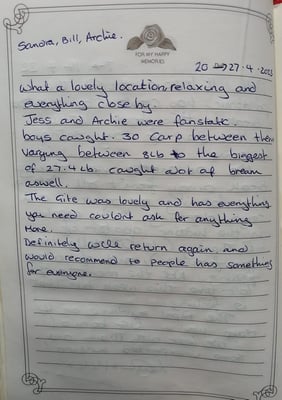 Sandra, Bill, Archie.
FOR MY HAPPY
MEMORIES
20 → 27.4.2023
what a lovely location, relaxing and
everything close by.
Jess and Archie were fanstatic.
boys caught. 30 Carp between them
varying between 8lb to the biggest
of 27.4lb. caught alot of bream
aswell.
The Gite was lovely and has everything
you need couldnt ask for anything
more.
Definitely will return again and
would recommend to people has something
for everyone.